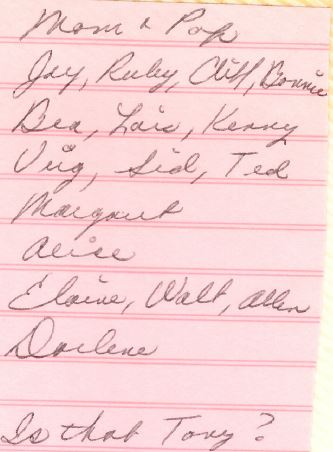 Mom & Pop
Jay, Ruby, Cliff, Bonnie
Bea, Lois, Kenny
Virg, Sid, Ted
Margaret
Alice
Elaine, Walt, Allen
Darlene
Is that Tony?